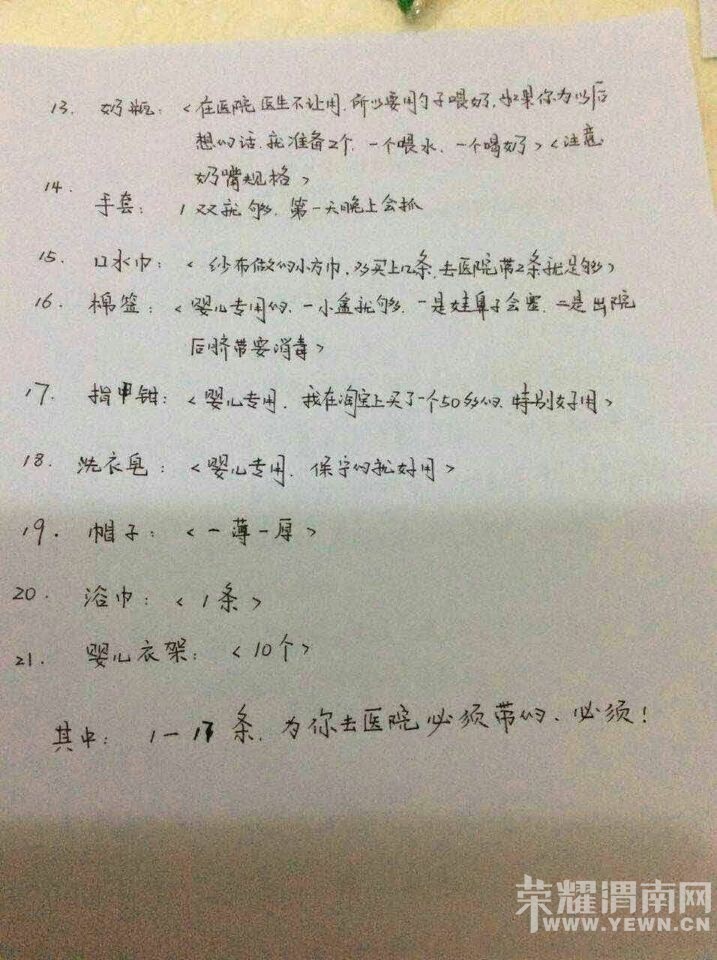 13. 奶瓶：<在医院医生不让用，所以要用勺子喂奶，如果你为以后
想的话，就准备2个，一个喂水，一个喝奶><注意
奶嘴规格>
14. 手套：1双就够，第一天晚上会抓
15. 口水巾：<纱布做的小方巾，买上12条，去医院带2条就足够>
16. 棉签：<婴儿专用的，一小盒就够，一是娃鼻子会塞，二是出院
后脐带要消毒>
17. 指甲钳：<婴儿专用，我在淘宝上买了一个50多的，特别好用>
18. 洗衣皂：<婴儿专用，保宁的就好用>
19. 帽子：<一薄一厚>
20. 浴巾：<1条>
21. 婴儿衣架：<10个>
其中：1－17条，为你去医院必须带的、必须！
荣耀渭南网
WWW.YEWN.CN